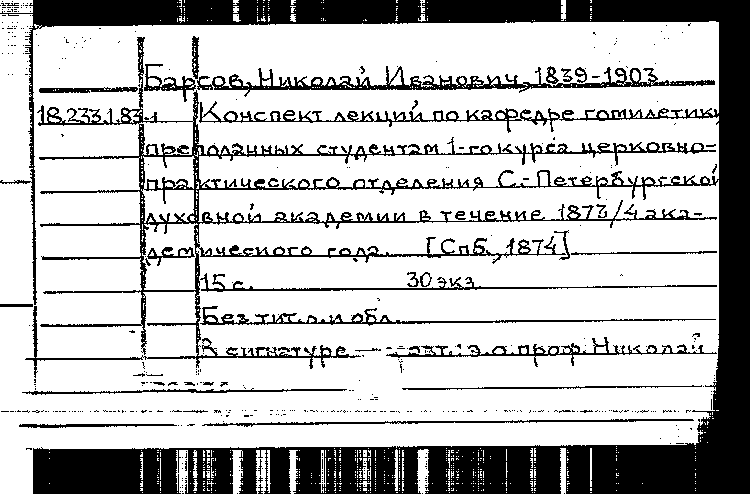 Барсов, Николай Иванович, 1839-1903
18.233.1.83-1 Конспект лекций по кафедре гомилетики
преподанных студентам 1-го курса церковно=
практического отделения С.-Петербургской
духовной академии в течение 1873/4 ака-
демического года. [Спб., 1874]
15 с. 30 экз.
Без тит. л. и обл.
В сигнатуре авт.: э.о. проф. Николай